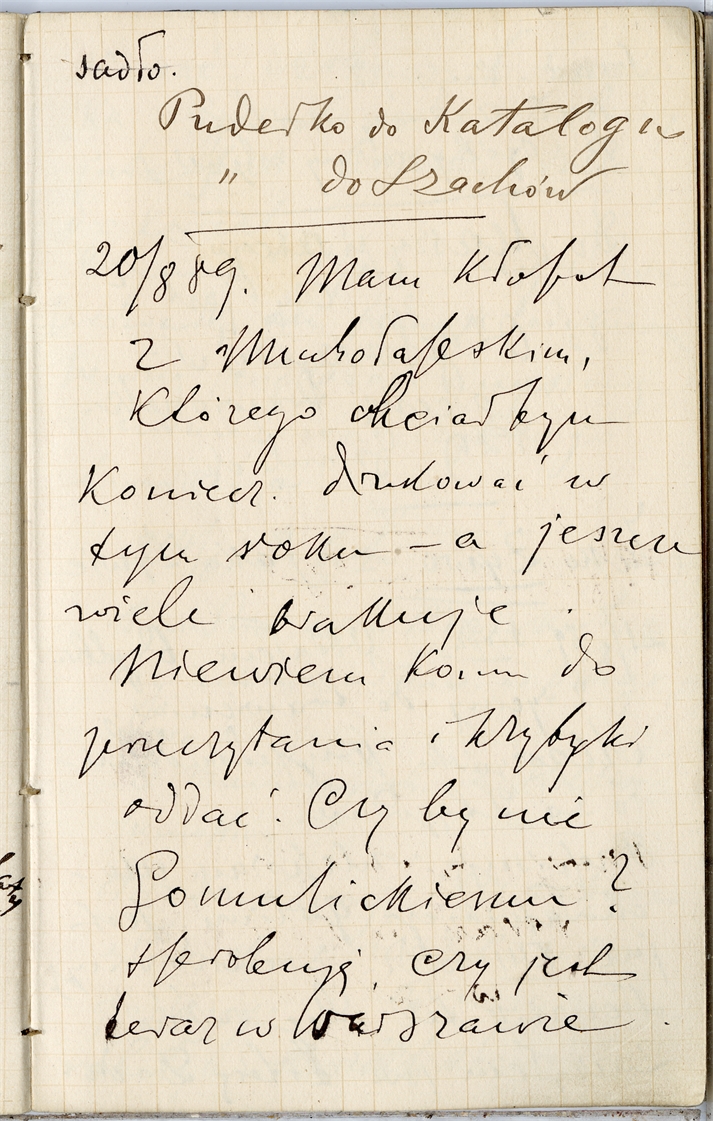 sadło.
Pudełko do Katalogu
" do Szachów
20/8 89. Mam Kłopot
z
Którego chciałbym
Koniecz. drukować w
tym roku – a jeszcze
wiele brakuje.
Niewiem Komu do
przeczytania i krytyki
oddać. Czy by nie
Gomulickiemu?
sprobuję, czy jest
teraz w Warszawie.